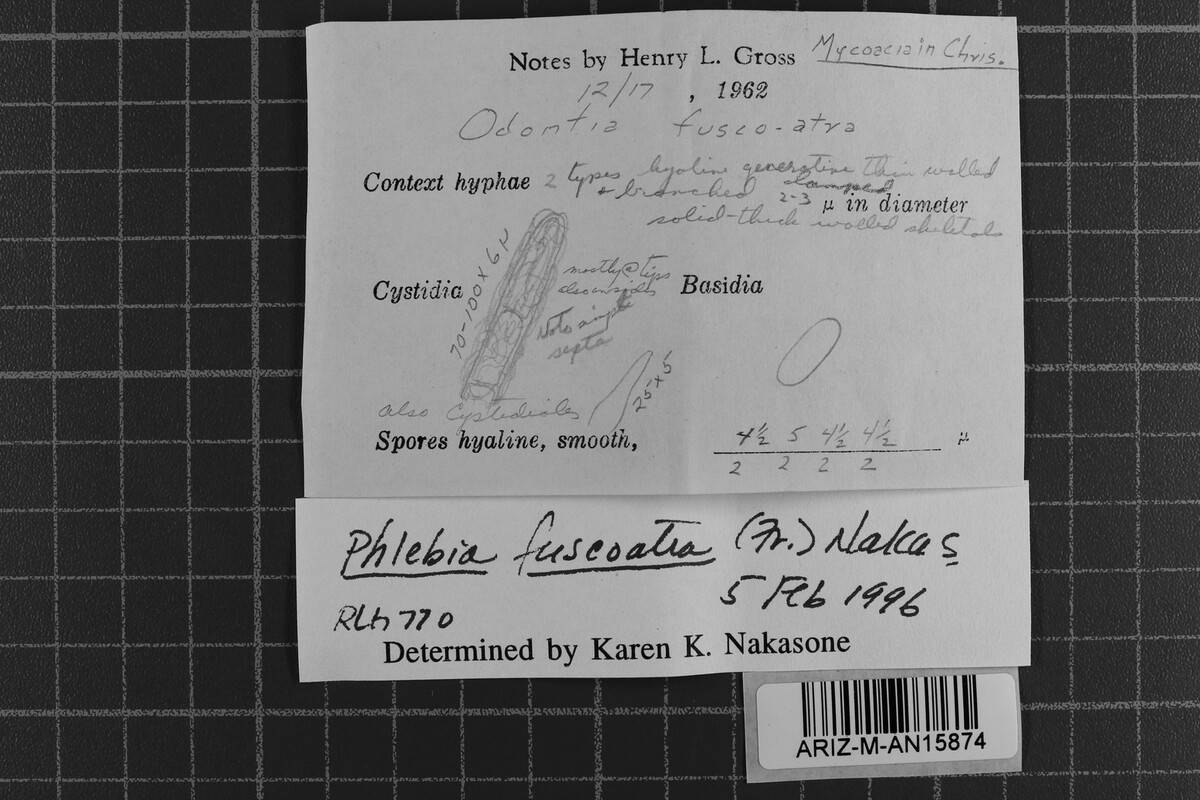 Notes by Henry L. Gross Mycoacia in Chris.
12/17, 1962
Odontia fusco-atra
Context hyphae 2 types hyaline generative thin walled
& branched clamped
2-3 μ in diameter
solid-thick walled skeletals
Cystidia 70-100 x 6 μ
mostly @ tips
also on sides
Note simple
septa
Basidia
also cystidioles 25 x 5
Spores hyaline, smooth, 4½ 5 4½ 4½ μ
2 2 2 2
Phlebia fuscoatra (Fr.) Nakas
5 Feb 1996
RLG 770
Determined by Karen K. Nakasone
ARIZ-M-AN15874